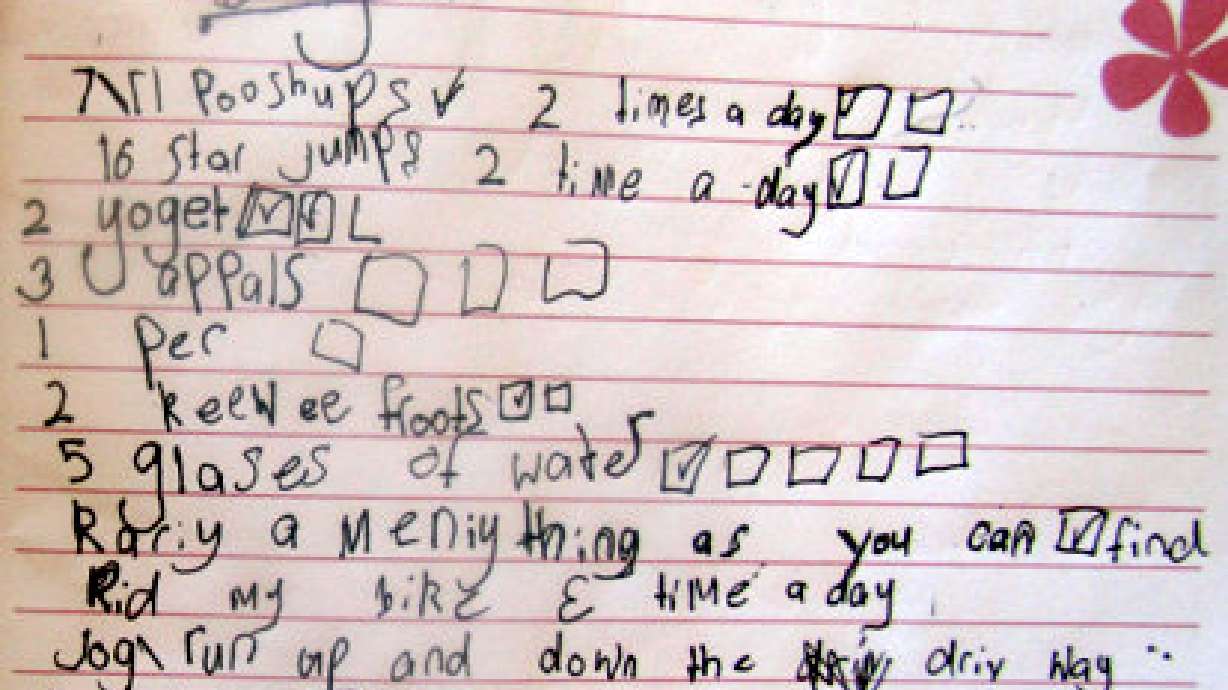 Pooshups 2 times a day
16 Star jumps 2 time a day
2 yoget
3 appals
1 per
2 keewee froots
5 glases of water
Rariy a meniy thing as you can find
Rid my bike 3 time a day
Jog run up and down the driv way